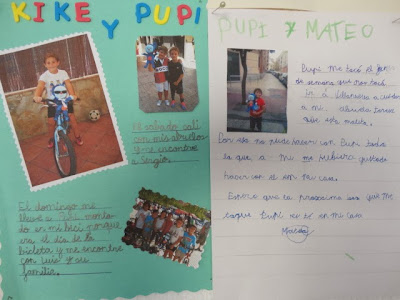 KIKE Y PUPI
El sábado salí
con mis abuelos
y me encontré
a Sergio.
El domingo me
llevé a Pupi montado
en mi bici porque
era el día de la
bicicleta y me encontré
con Luis y su
familia.
PUPI Y MATEO
Pupi me tocó el fin
de semana que nos tocó
ir a Villanueva a cuidar
a mi abuela
que está malita.
Por eso no pude hacer con Pupi todo
lo que a mi me hubiera gustado
hacer con el en mi casa.
Espero que la próxima vez que me
toque Pupi esté en mi casa
Mateo